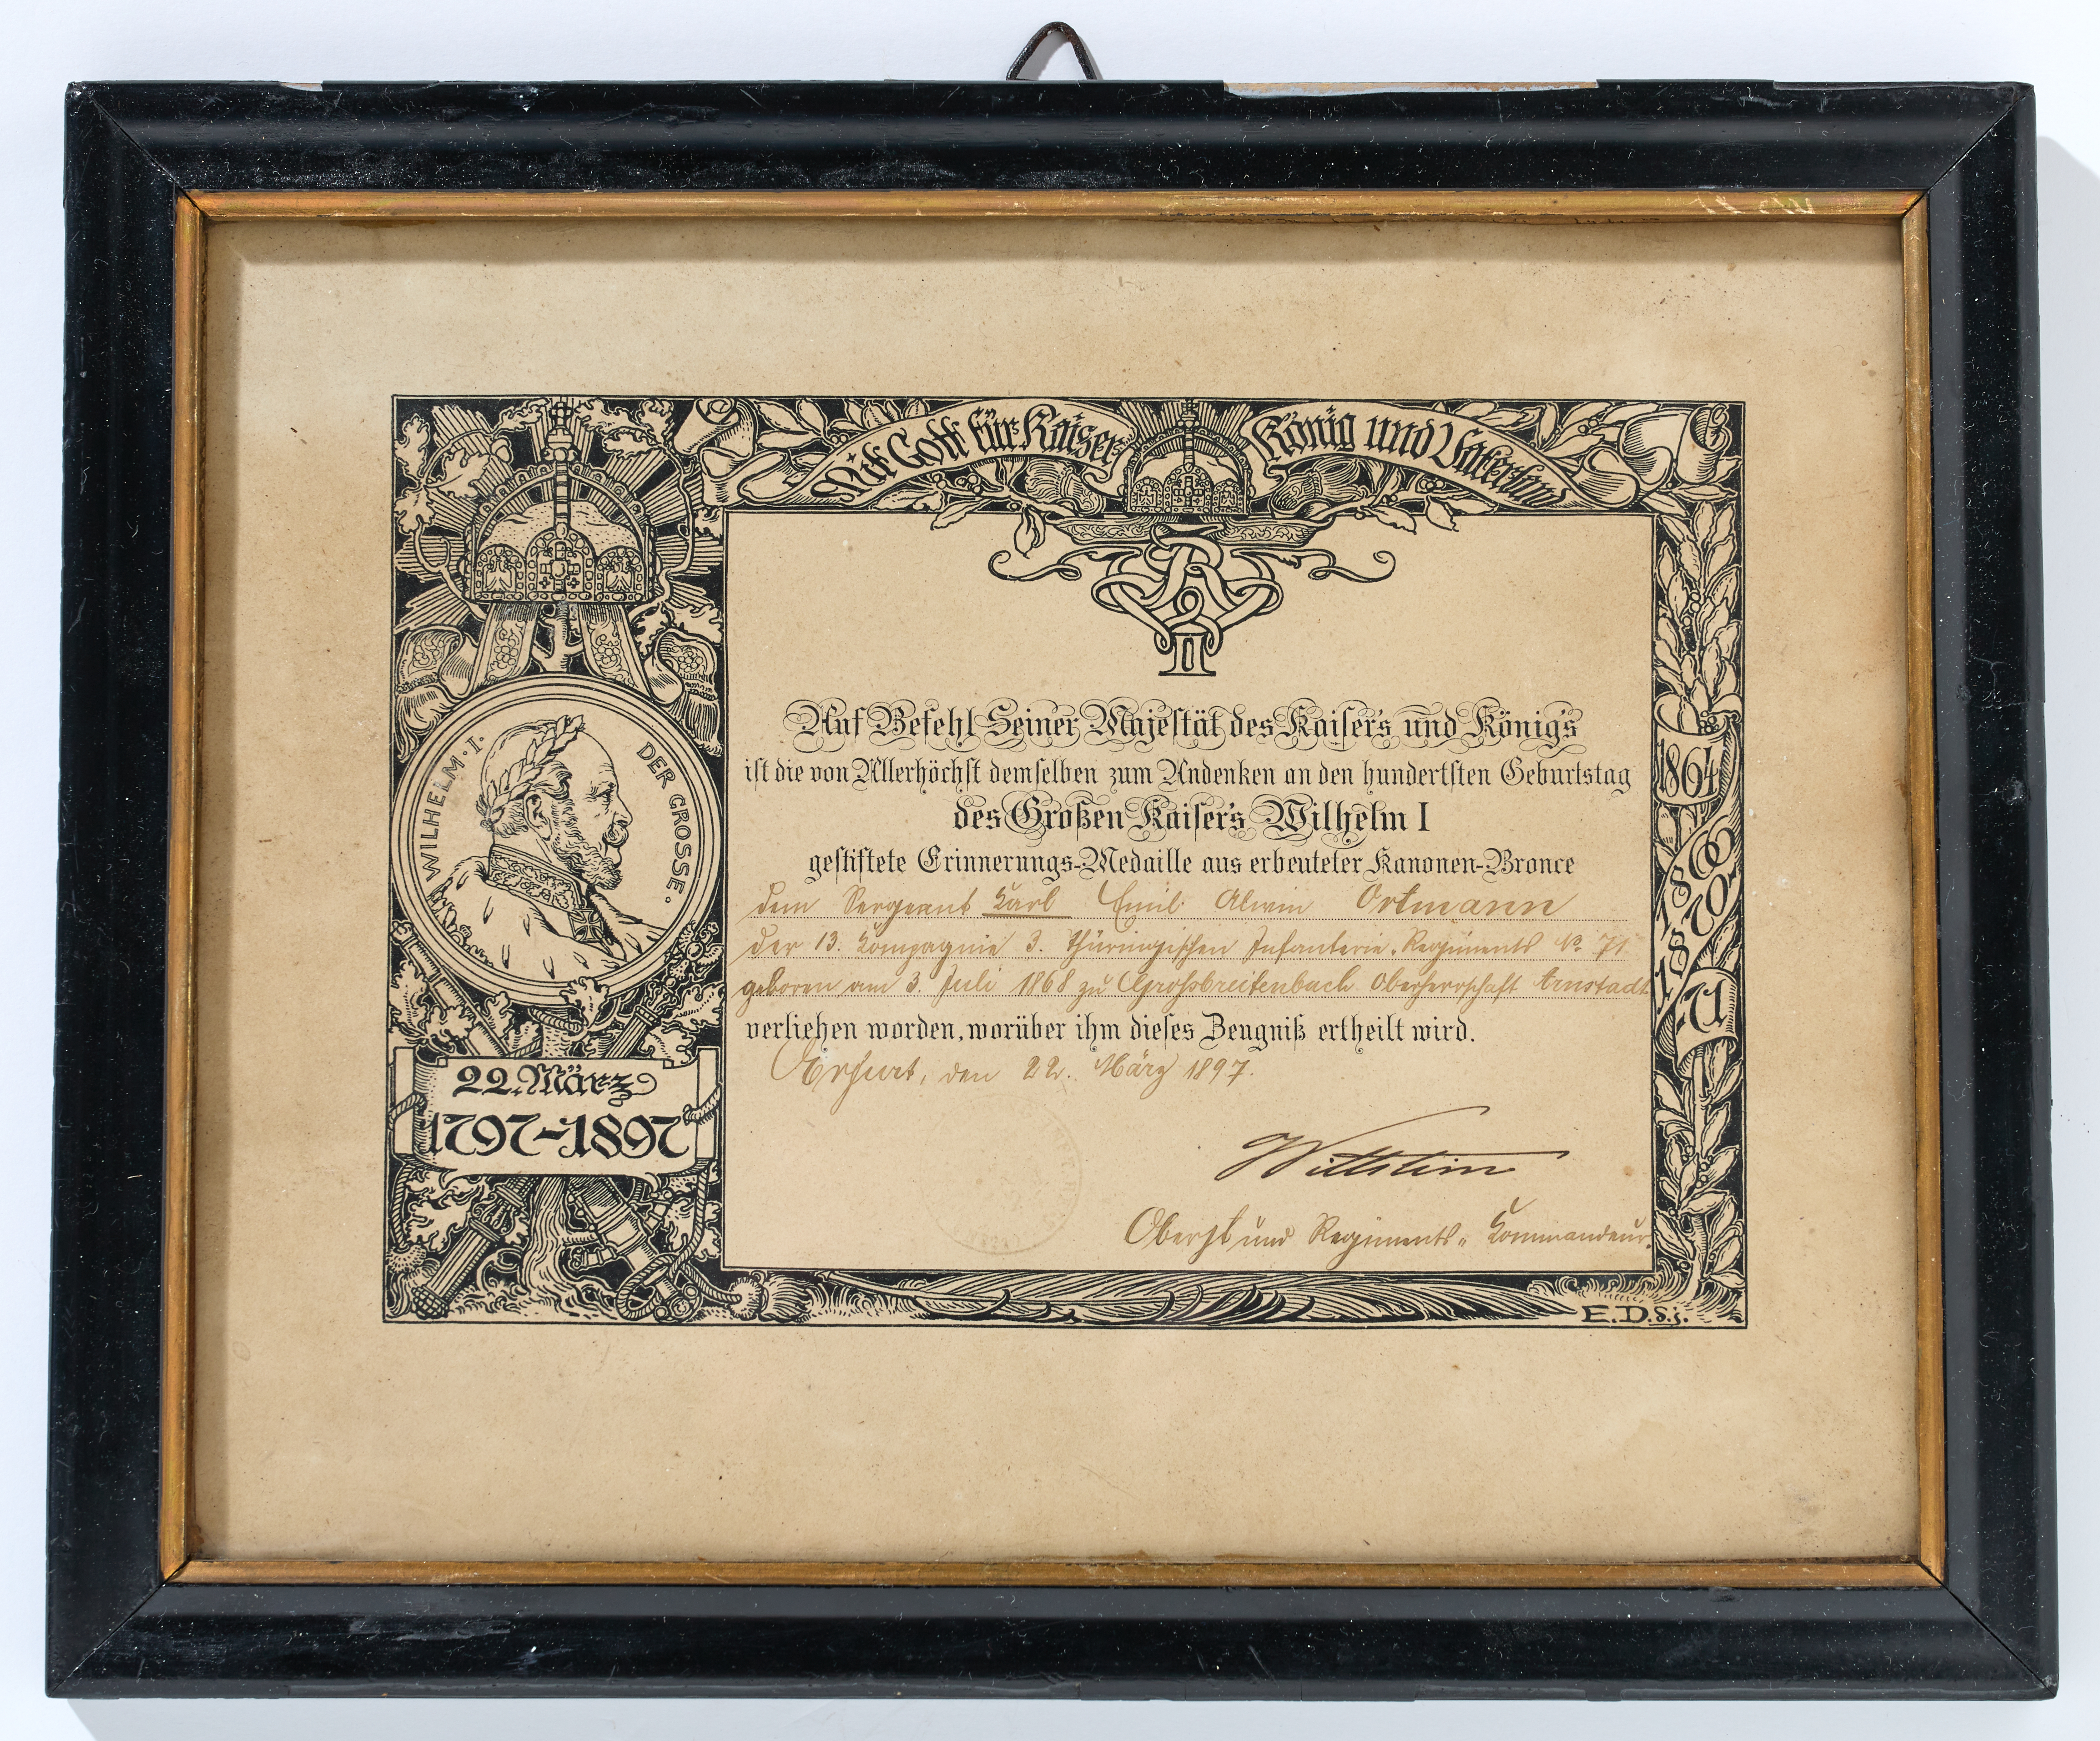 Mit Gott für Kaiser König und Vaterland
WILHELM·I· DER GROSSE·
22. März
1797–1897
1864
1866
1870
71
Auf Befehl Seiner Majestät des Kaisers und Königs
ist die von Allerhöchst demselben zum Andenken an den hundertsten Geburtstag
des Großen Kaisers Wilhelm I
gestiftete Erinnerungs-Medaille aus erbeuteter Kanonen-Bronce
dem Sergeant Karl Emil Alwin Ortmann
der 13. Kompagnie 3. Thüringischen Infanterie-Regiments No. 71
geboren am 3. Juli 1868 zu Großbreitenbach Oberherrschaft Arnstadt
verliehen worden, worüber ihm dieses Zeugniß ertheilt wird.
Erfurt, den 22. März 1897.
Oberst und Regiments-Kommandeur.
E.D.s.j.